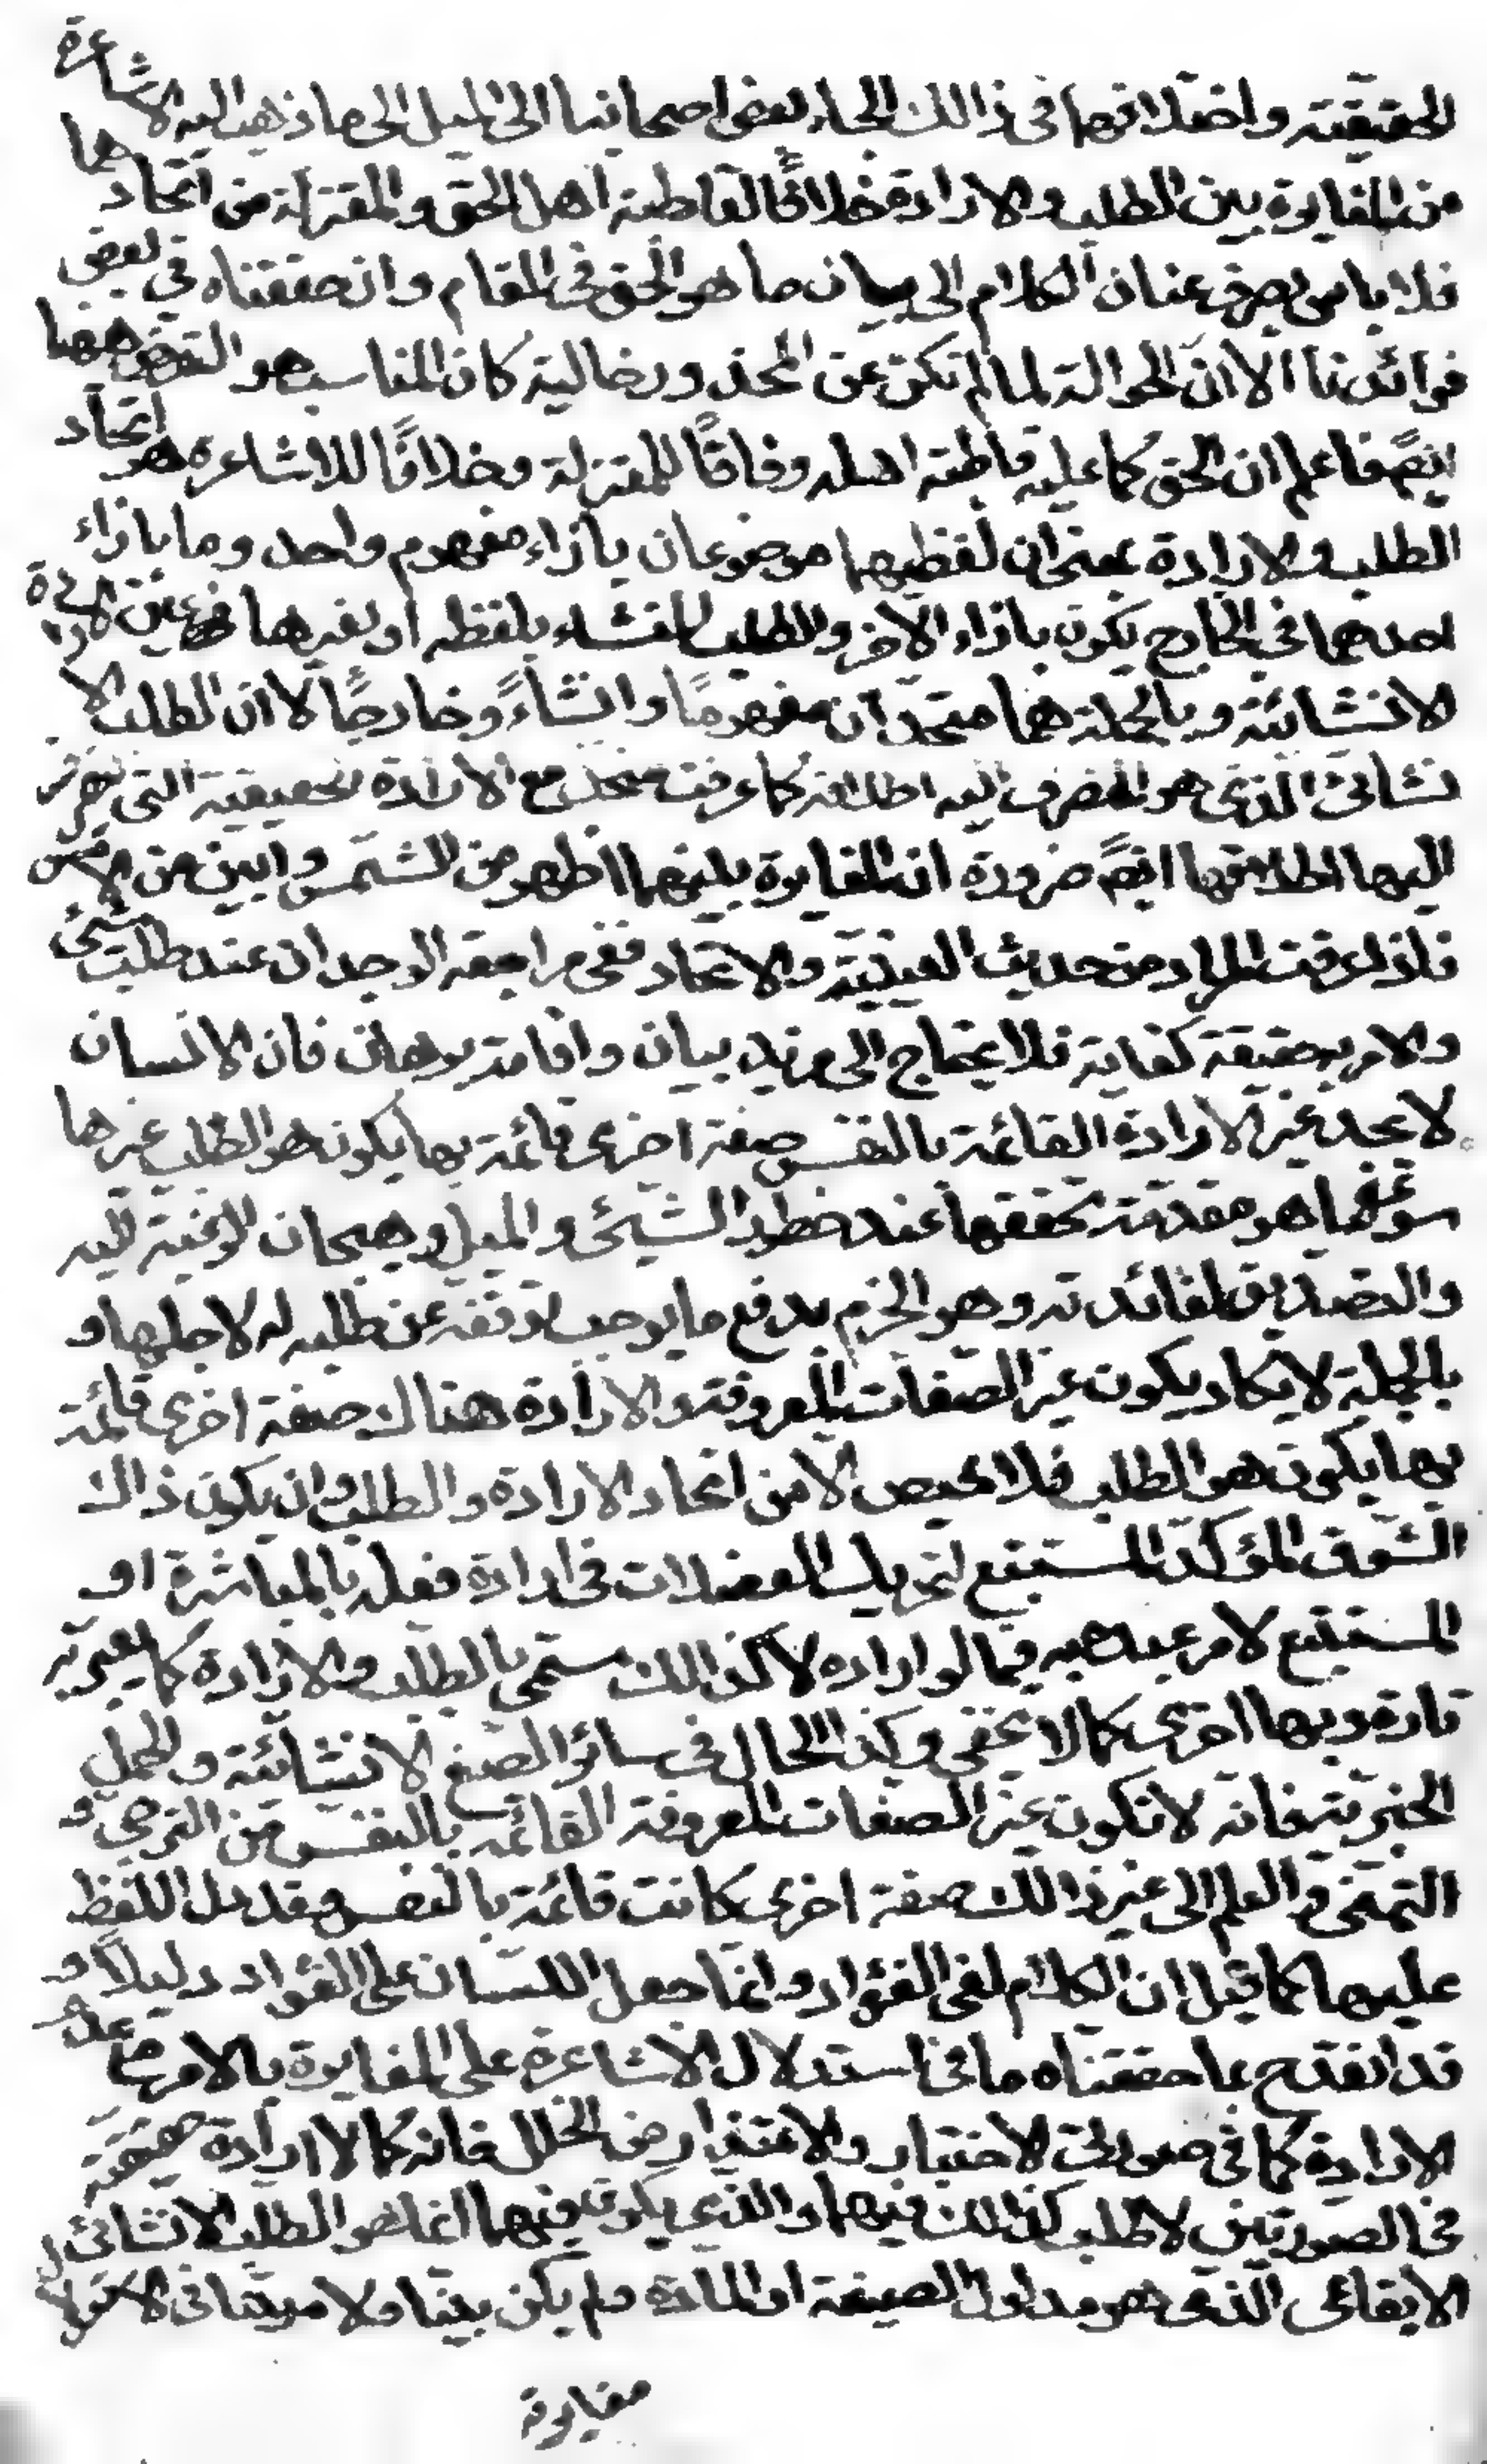 الحقيقية واختلافهما في ذالك الجاء بعض اصحابنا الى الميل الى ما ذهب اليه الاشاعرة
من المغايرة بين الطلب والارادة خلافًا لقاطبة اهل الحق والمعتزلة من اتحادهما
فلا باس بصرف عنان الكلام الى بيان ما هو الحق في المقام وان حققناه في بعض
فوائدنا الا ان الحوالة لما لم تكن عن المحذور خالية كان المناسب هو التعرض ههنا
ايضً فاعلم ان الحق كما عليه قاطبة اهله وفاقًا للمعتزلة وخلافًا للاشاعره هو اتحاد
الطلب والارادة بمعنى ان لفظيهما موضوعان بازاء مفهوم واحد وما بازاء
احدهما في الخارج يكون بازاء الاخر والطلب المنشاء بلفظه او بغيرها عين الارادة
الانشائية وبالجملة هما متحدان مفهومًا وانشاءً وخارجًا لا ان الطلب الا
نشائى الذى هو المنصرف اليه اطلاقه كما عرفت متحد مع الارادة الحقيقية التى ينصرف
اليها اطلاقها ايضً ضرورة ان المغايرة بينهما اظهر من الشمس وابين من الامس
فاذا عرفت المراد من حديث العينية والاتحاد ففى مراجعة الوجدان عند طلب شئ
والامر به حقيقة كفاية فلا يحتاج الى مزيد بيان واقامة برهان فان الانسان
لا يجد غير الارادة القائمة بالنفس صفة اخرى قائمة بها يكون هو الطلب غيرها
سوى ما هو مقدمة تحققها عند خطور الشيئ والميل وهيجان الرغبة اليه
والتصديق لفائدته وهو الجزم بدفع ما يوجب توقفه عن طلبه لاجلها و
بالجملة لا يكاد يكون غير الصفات المعروفة والارادة هناك صفة اخرى قائمة
بها يكون هو الطلب فلا محيص الا من اتحاد الارادة والطلب وان يكون ذاك
الشوق المؤكد المستتبع لتحريك العضلات في ارادة فعله بالمباشرة او
المستتبع لامر عبيده به فيما لو اراده لا كذالك مسمى بالطلب والارادة كما يعبر به
تارة وبها اخرى كما لا يخفى وكذا الحال في سائر الصيغ الانشائية والجمل
الخبرية فانه لا تكون غير الصفات المعروفة القائمة بالنفس من الترجى و
التمنى والعلم الى غير ذالك صفة اخرى كانت قائمة بالنفس وقد دل اللفظ
عليها كما قيل ان الكلام لفى الفؤاد وانما جعل اللسان على الفؤاد دليلًا و
قد انقدح بما حققناه ما في استدلال الاشاعرة على المغايرة بالامر مع عدم
الارادة كما في صورتى الاختبار والاعتذار من الخلل فانه كما لا ارادة حقيقة
في الصورتين لا طلب كذالك فيهما والذي يكون فيهما انما هو الطلب الانشائى
الايقاعى الذى هو مدلول الصيغة او المادة ولم يكن بينا ولا مبينا في الاستدلال
مغايرة